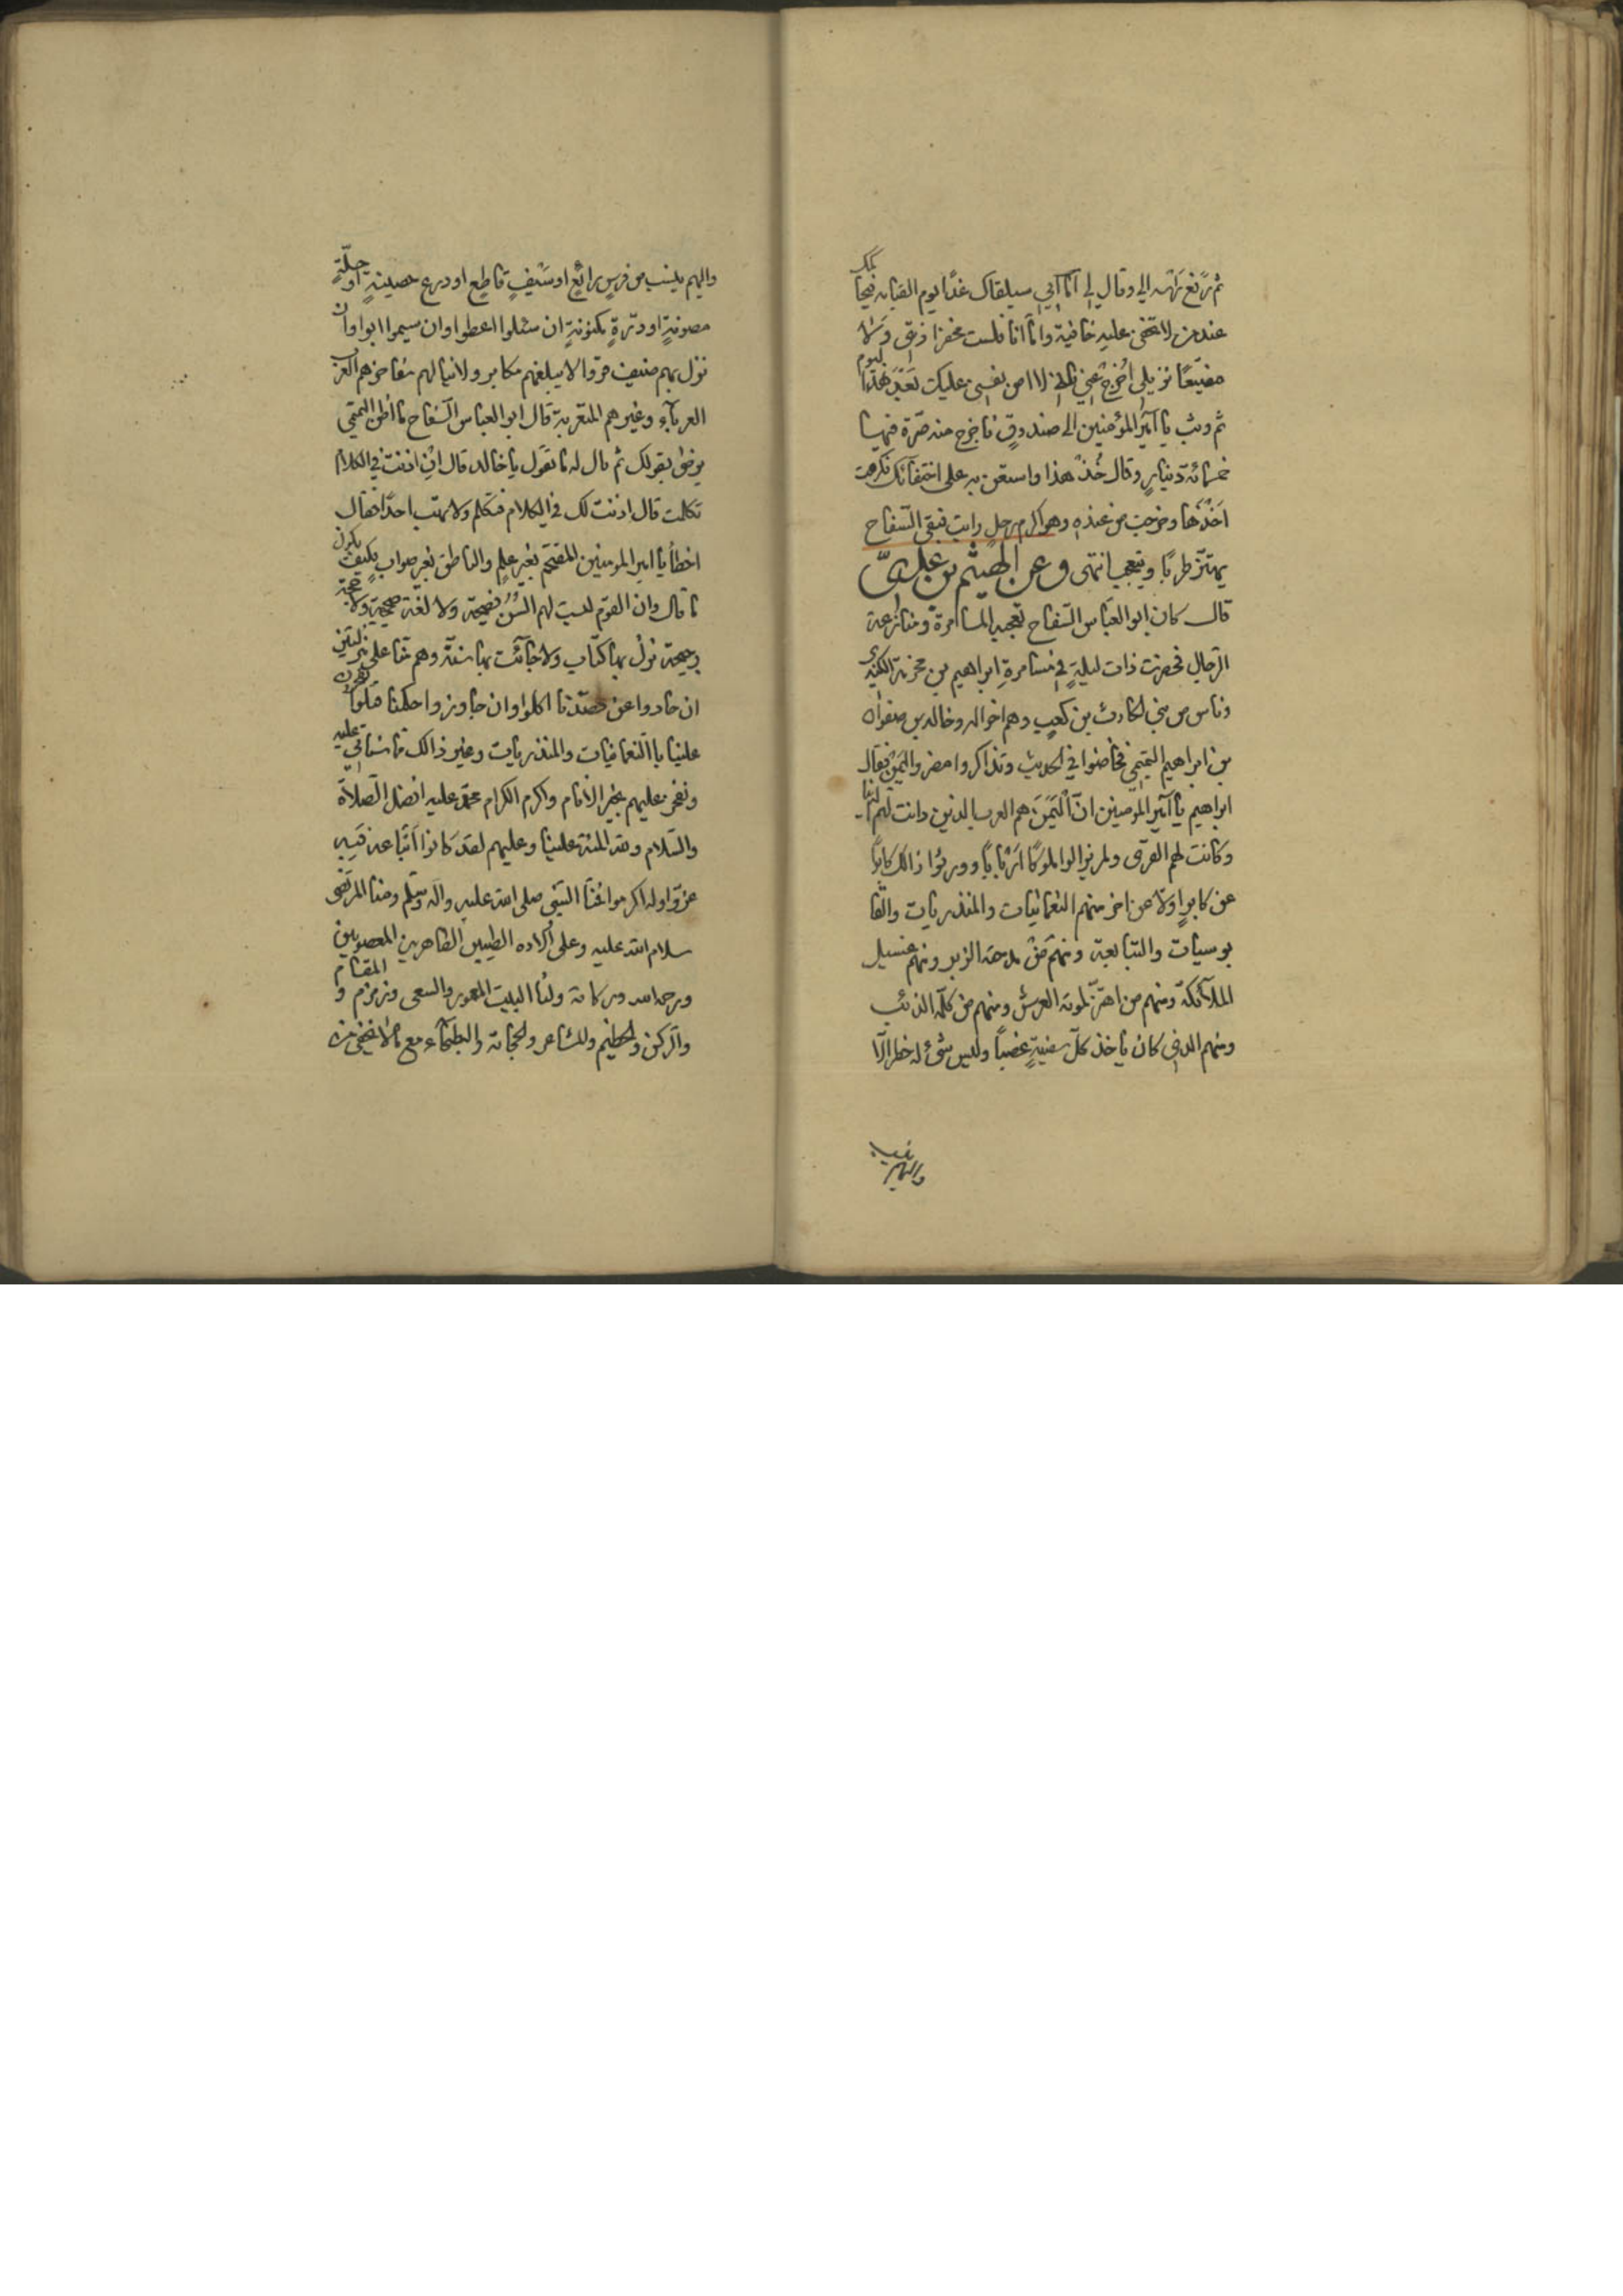 ثم رفع راسه الي وقال لي اما ابي سيلقاك غدا يوم القيامه فيحاكمك
عند من لا تخفى عليه خافية واما انا فلست مخفرا ذمتي ولا
مضيعا نزيلي اخرج عني فاني لا امن نفسي عليك بعد هذا اليوم
ثم وثب يا امير المؤمنين الى صندوق فاخرج منه صرة فيها
خمسمائة دينار وقال خذ هذا واستعن به على اختفائك فكرهت
اخذها وخرجت من عنده وهو اكرم رجل رايت فبقى السفاح
يهتز طربا ويتعجب انتهى وعن الهيثم بن عدي
قال كان ابو العباس السفاح تعجبه المسامرة ومنازعة
الرجال فحضرت ذات ليلة في مسامرة ابراهيم بن مخرمة الكندي
وناس من بني الحارث بن كعب وهم اخواله وخالد بن صفوان
بن ابراهيم التميمي فخاضوا في الحديث وتذاكروا مضر واليمن فقال
ابراهيم يا امير المؤمنين ان اليمن هم العرب الذين دانت لهم الدنيا
وكانت لهم القرى ولم يزالوا ملوكا اربابا وورثوا ذالك كابرا
عن كابر اولا عن اخر منهم النعمانيات والمنذريات والقا
بوسيات والتبابعة ومنهم من مدحته الزبر ومنهم غسيل
الملائكة ومنهم من اهتز لموته العرش ومنهم من كلمه الذئب
ومنهم الذي كان ياخذ كل سفينة غضبا وليس شئ له خطر الا
واليهم ينسب
واليهم ينسب من فرس رائع او سيف قاطع او درع حصينة او حلة
مصونة او درة مكنونة ان سئلوا اعطوا وان سيموا ابوا وان
نزل بهم ضيف قروا لا يبلغهم مكابر ولا ينالهم مفاخر هم العرب
العرباء وغيرهم المتعربة قال ابو العباس السفاح ما اظن التميمي
يرضى بقولك ثم قال له ما تقول يا خالد قال ان اذنت في الكلام
تكلمت قال اذنت لك في الكلام فتكلم ولا تهب احدا فقال
اخطأ يا امير المومنين المقتحم بغير علم والناطق بغير صواب فكيف يكون
ما قال وان القوم ليست لهم السن فصيحة ولا لغة صحيحة ولا حجة
رجيحة نزل بها كتاب ولا جائت بها سنة وهم منا على منزلتين
ان حادوا عن قصدنا اكلوا وان جاوزوا حكمنا قتلوا يفخرون
علينا باالنعمانيات والمنذريات وغير ذالك مما سناتي عليه
ونفخر عليهم بخير الانام واكرم الكرام محمد عليه افضل الصلاة
والسلام ولله المنة علينا وعليهم لقد كانوا اتباعه فبه
عزوا وله اكرموا فمنا النبي صلى الله عليه واله وسلم ومنا المرتضى
سلام الله عليه وعلى اولاده الطيبين الطاهرين المعصومين
ورحمة الله وبركاته ولنا البيت المعمور والسعى وزمزم والمقام
والركن والحطيم والمشاعر والحجابة والبطحاء مع ما لا يخفى من